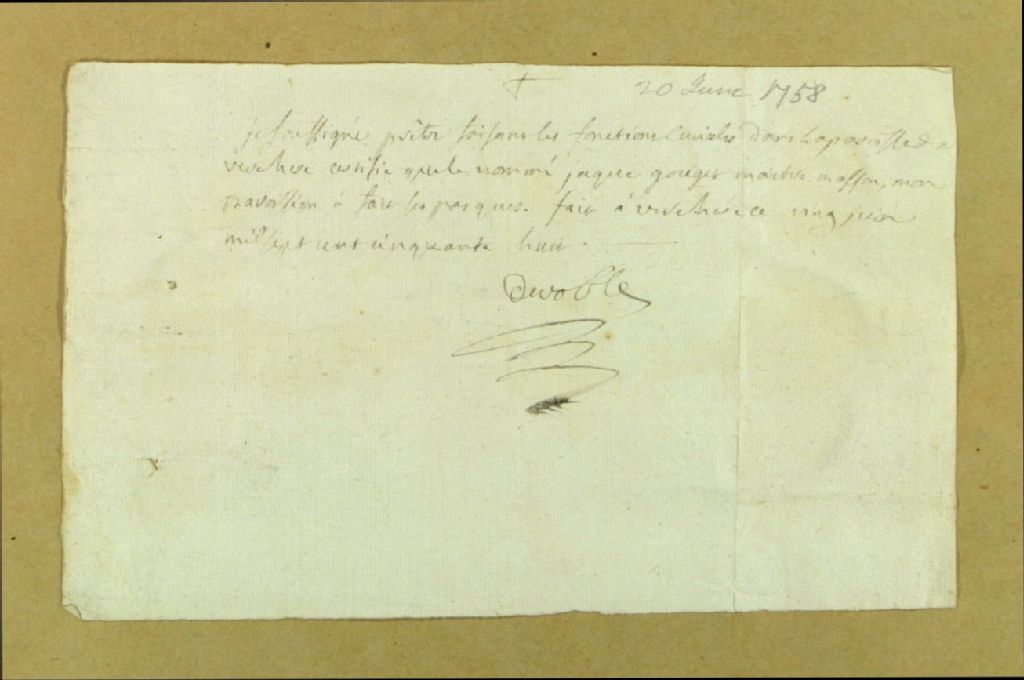 20 June 1758
je soussigné prêtre faisant les fonctions Curiales dans la paroisse de
certifie que le nommé jaque gouget maitre masson, mon
paroissien à fait les pasques. fait à ce cinq juin
mil sept cent cinquante huit.